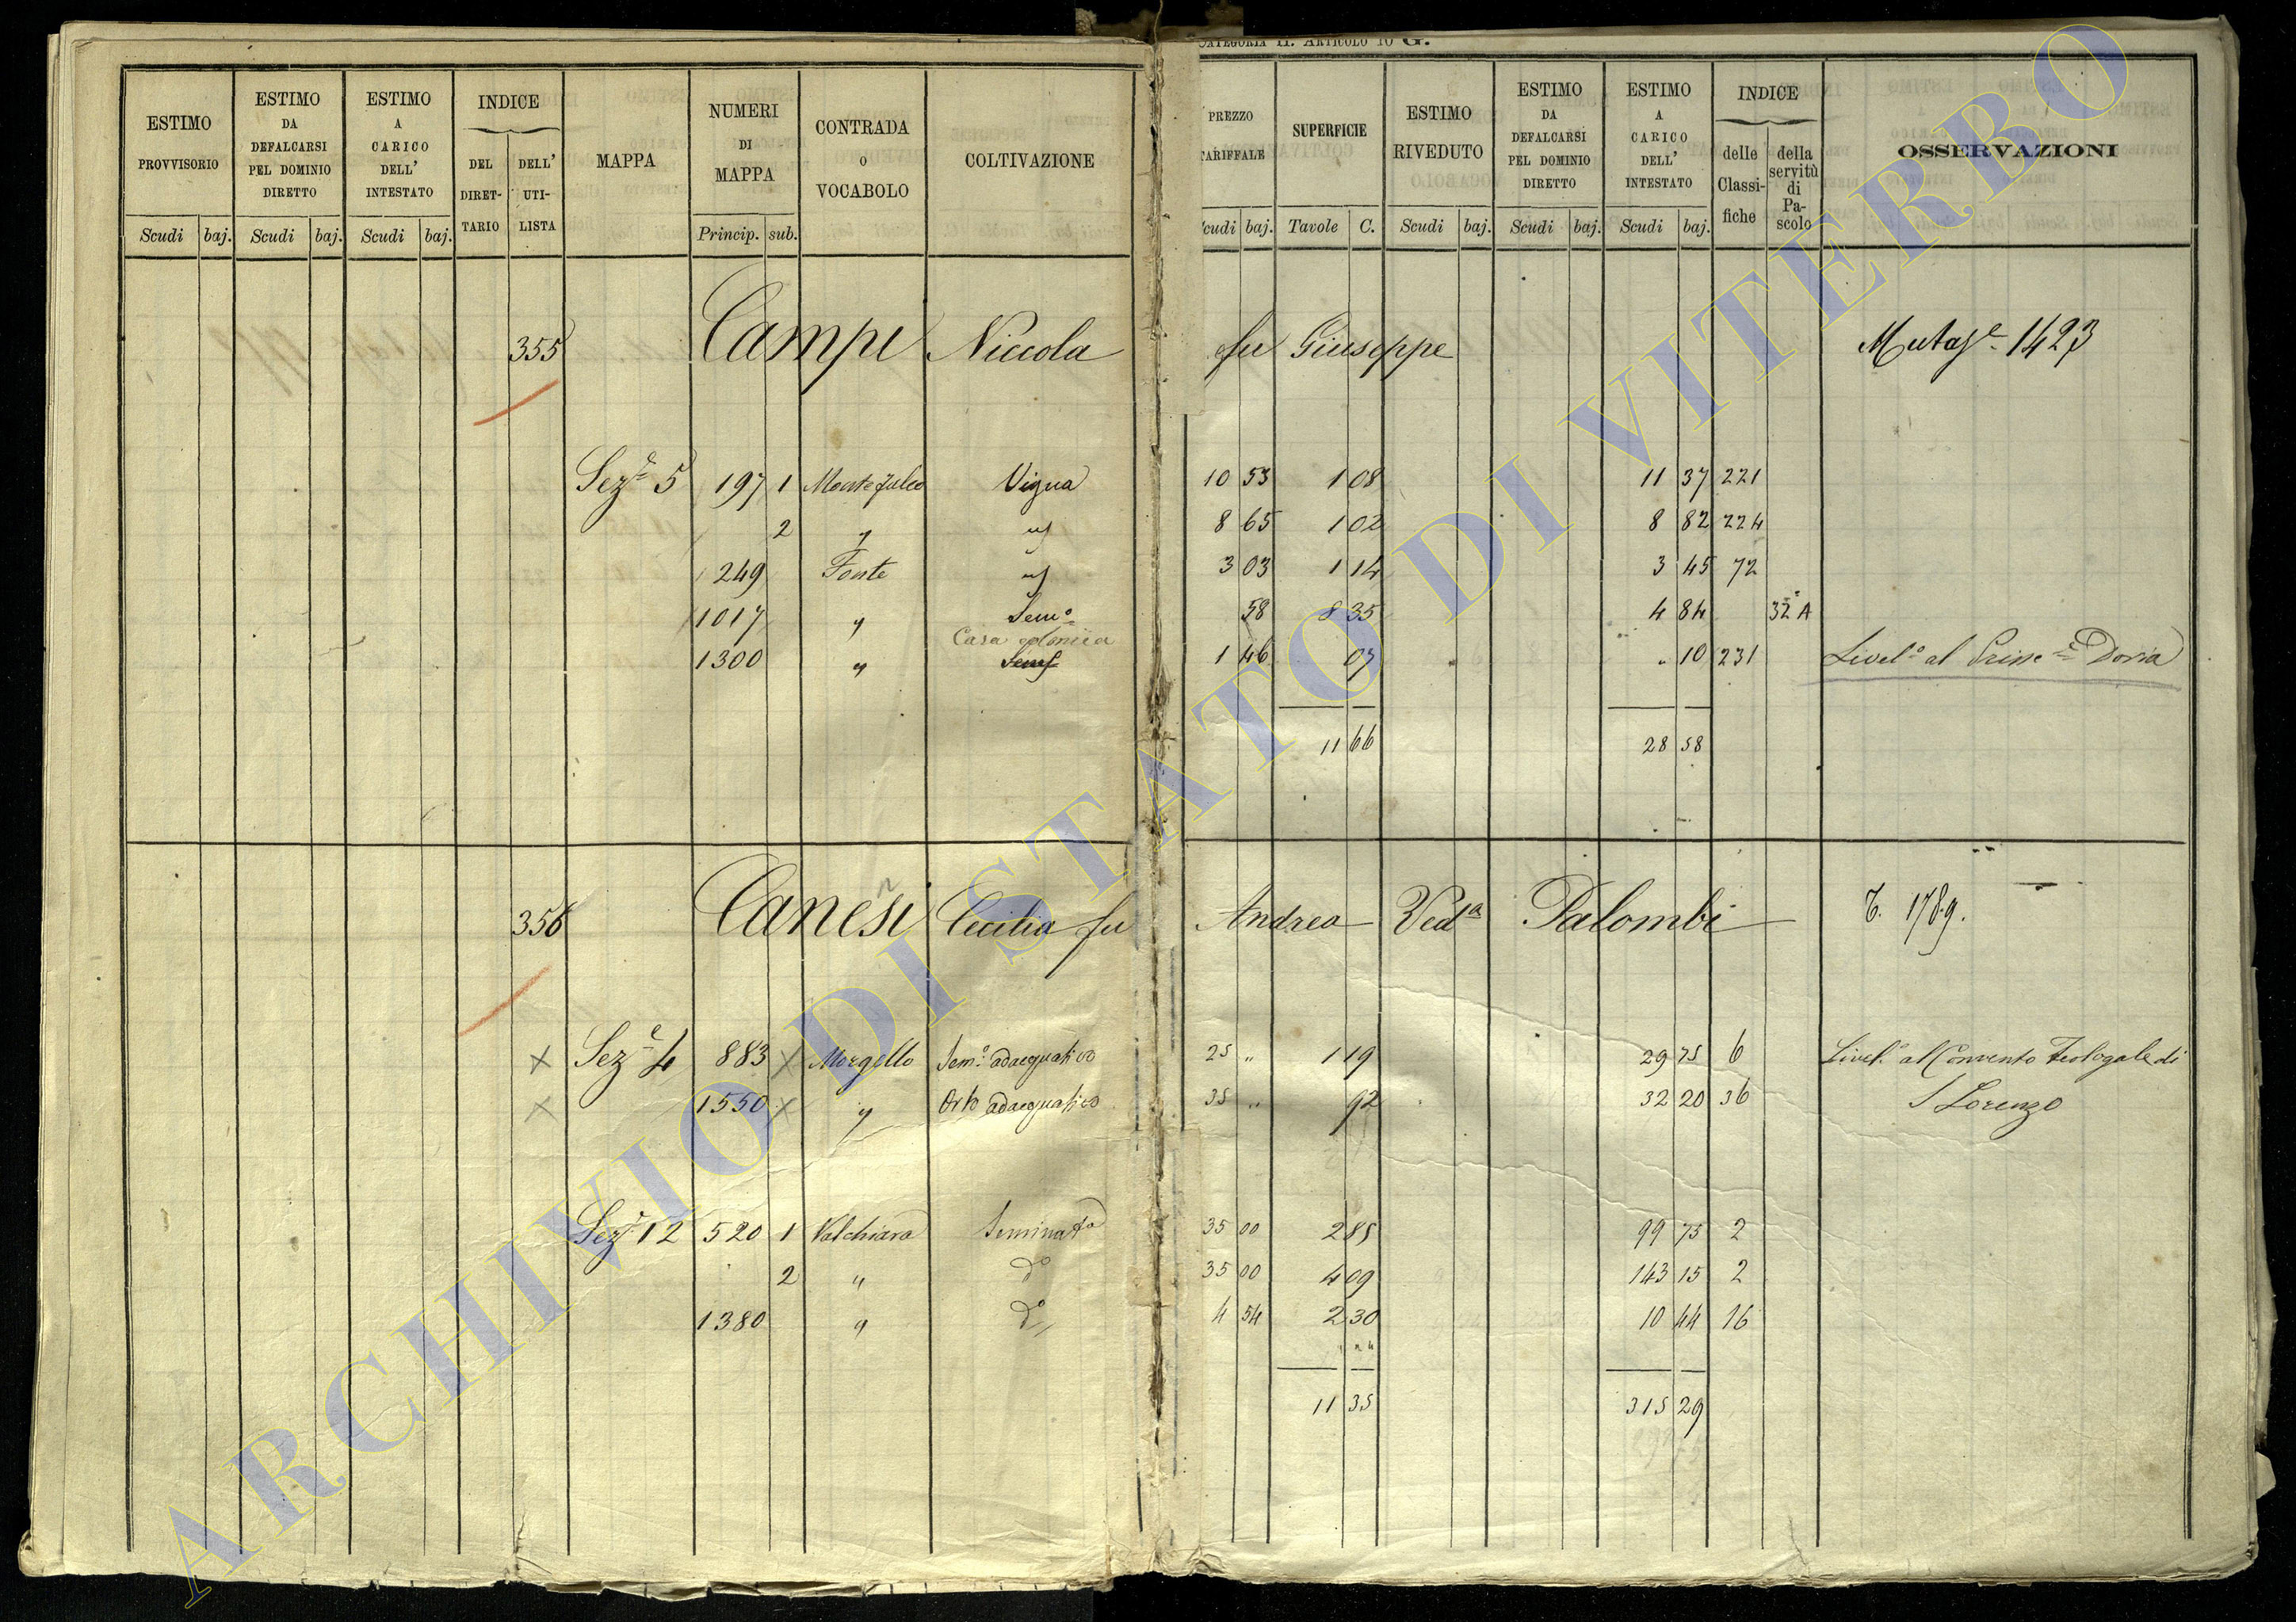 CATEGORIA II. ARTICOLO 10 G.
ESTIMO PROVVISORIO Scudi baj.
ESTIMO DA DEFALCARSI PEL DOMINIO DIRETTO Scudi baj.
ESTIMO A CARICO DELL' INTESTATO Scudi baj.
INDICE DEL DIRET-TARIO DELL' UTI-LISTA
MAPPA
NUMERI DI MAPPA Princip. sub.
CONTRADA O VOCABOLO
COLTIVAZIONE
PREZZO TARIFFALE Scudi baj.
SUPERFICIE Tavole C.
ESTIMO RIVEDUTO Scudi baj.
ESTIMO DA DEFALCARSI PEL DOMINIO DIRETTO Scudi baj.
ESTIMO A CARICO DELL' INTESTATO Scudi baj.
INDICE delle Classi-fiche della servitù di Pa-scolo
OSSERVAZIONI
355 Campi Niccola fu Giuseppe 1423
Sez.e 5 197 1 Vigna 10 53 1 08 11 37 221
2 " 8 65 1 02 8 82 224
249 Fonte 3 03 1 14 3 45 72
1017 " Sem.o 58 8 35 4 84 32 A
Casa colonica
1300 " 1 46 07 " 10 231 Livel.o al Princ.e Doria
11 66 28 58
356 Canesi Cecilia fu Andrea Ved.a Palombi T. 1789.
× Sez.e 4 883 × Morgello Sem.o adaequativo 25 " 1 19 29 75 6 Livel.o al Convento Teologale di
× 1550 × " Orto adaequativo 35 " 92 32 20 36 S Lorenzo
Sez.e 12 520 1 Valchiara Seminato 35 00 2 85 99 75 2
2 " d.o 35 00 4 09 143 15 2
1380 " d.o 4 54 2 30 10 44 16
11 35 315 29
ARCHIVIO DI STATO DI VITERBO